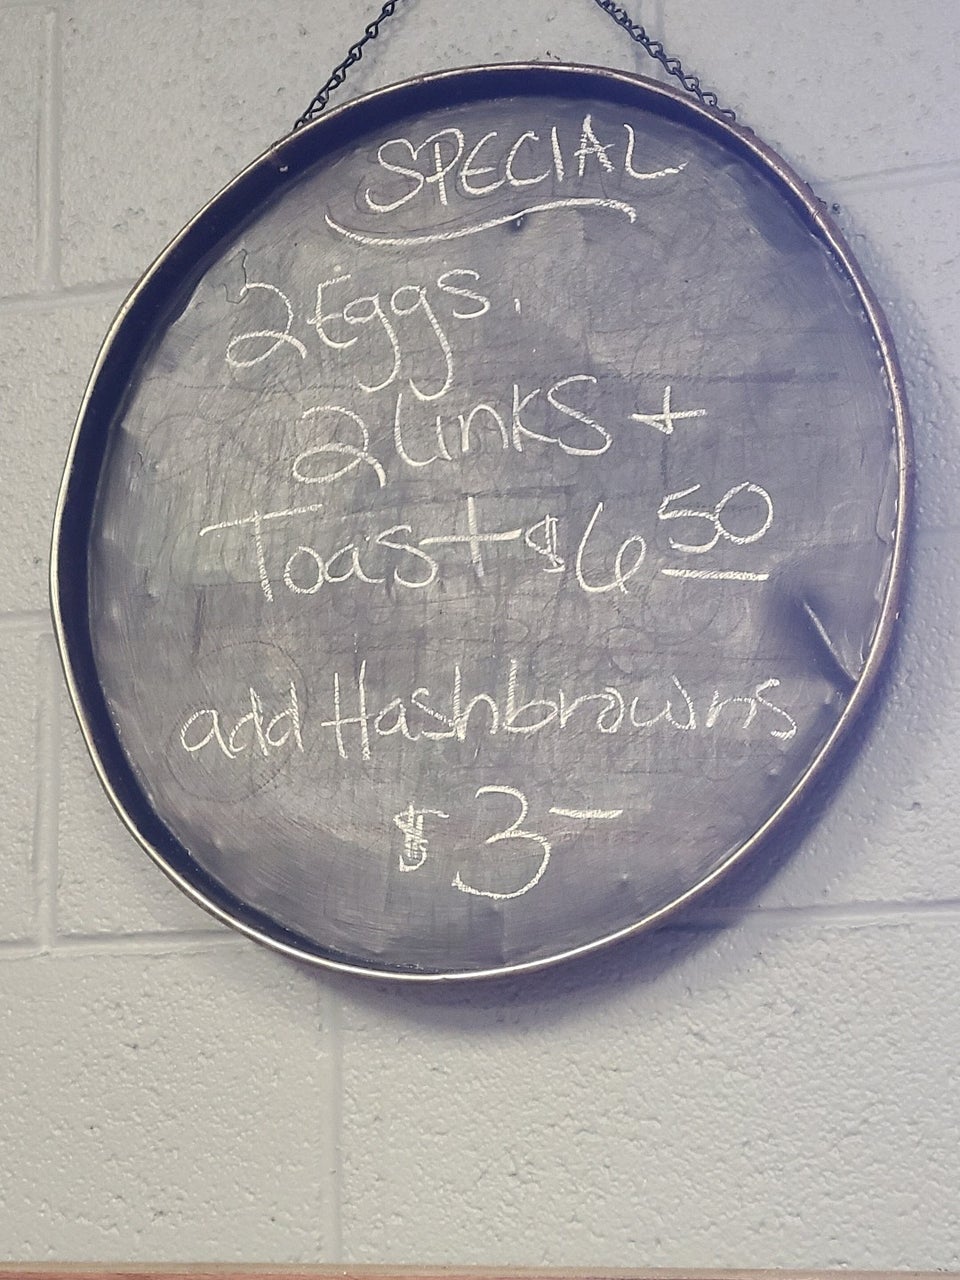 SPECIAL
2 Eggs.
2 Links +
Toast $6 50
add Hashbrowns
$3-